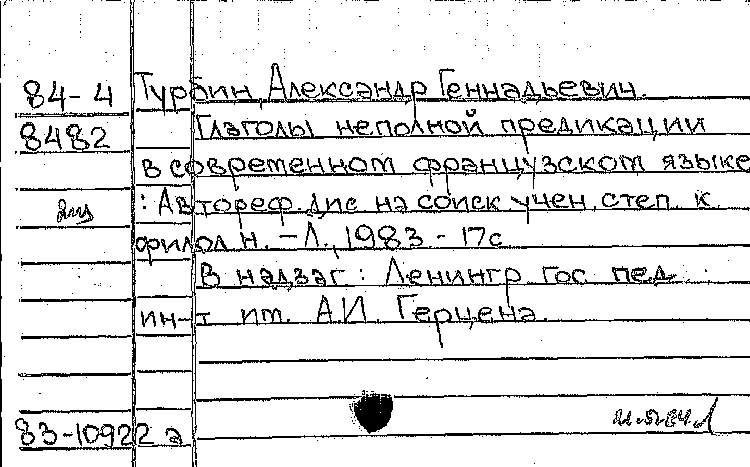 84-4 Турбин, Александр Геннадьевич.
8482 Глаголы неполной предикации
в современном французском языке
: Автореф. дис на соиск учен. степ. к.
филол н. - Л., 1983 - 17с
В надзаг: Ленингр гос пед
ин-т им. А.И. Герцена.
83-10922 а